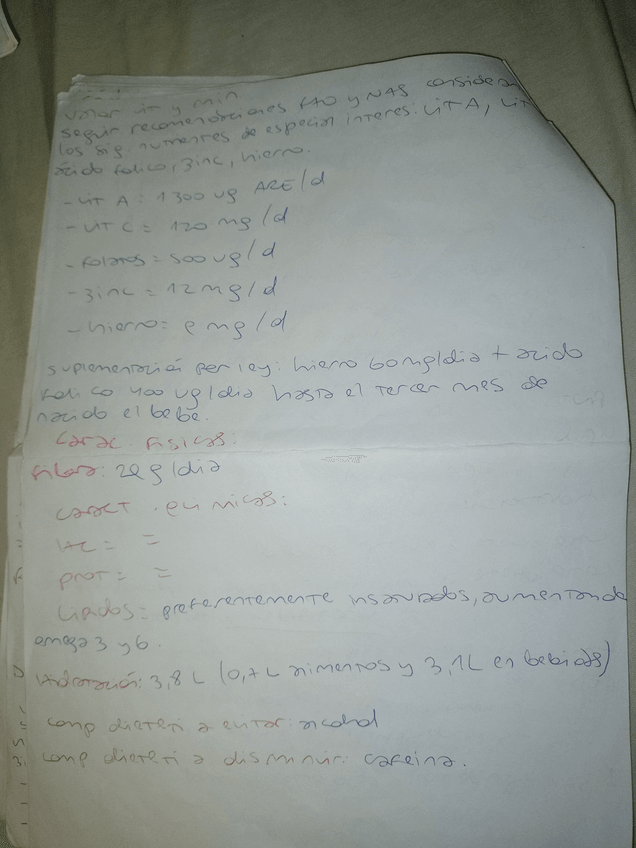 valor vit y min
seguir recomendaciones FAO y NAS considerar
los sig. nutrientes de especial interes: vit A, vit
ácido folico, zinc, hierro.
- vit A: 1300 ug ARE/d
- vit C = 120 mg/d
- Folatos = 500 ug/d
- zinc = 12 mg/d
- hierro: 9 mg/d
suplementación por ley: hierro 60 mg/dia + acido
folico 400 ug/dia hasta el tercer mes de
nacido el bebe.
Carac. Fisicas:
Fibra: 29 g/dia
caract. quimicas:
HC = =
prot = =
Lipidos = preferentemente insaturados, aumentando
omega 3 y 6.
Hidratación: 3,8 L (0,7 L alimentos y 3,1 L en bebidas)
comp dieteti a evitar: alcohol
comp dieteti a disminuir: cafeina.